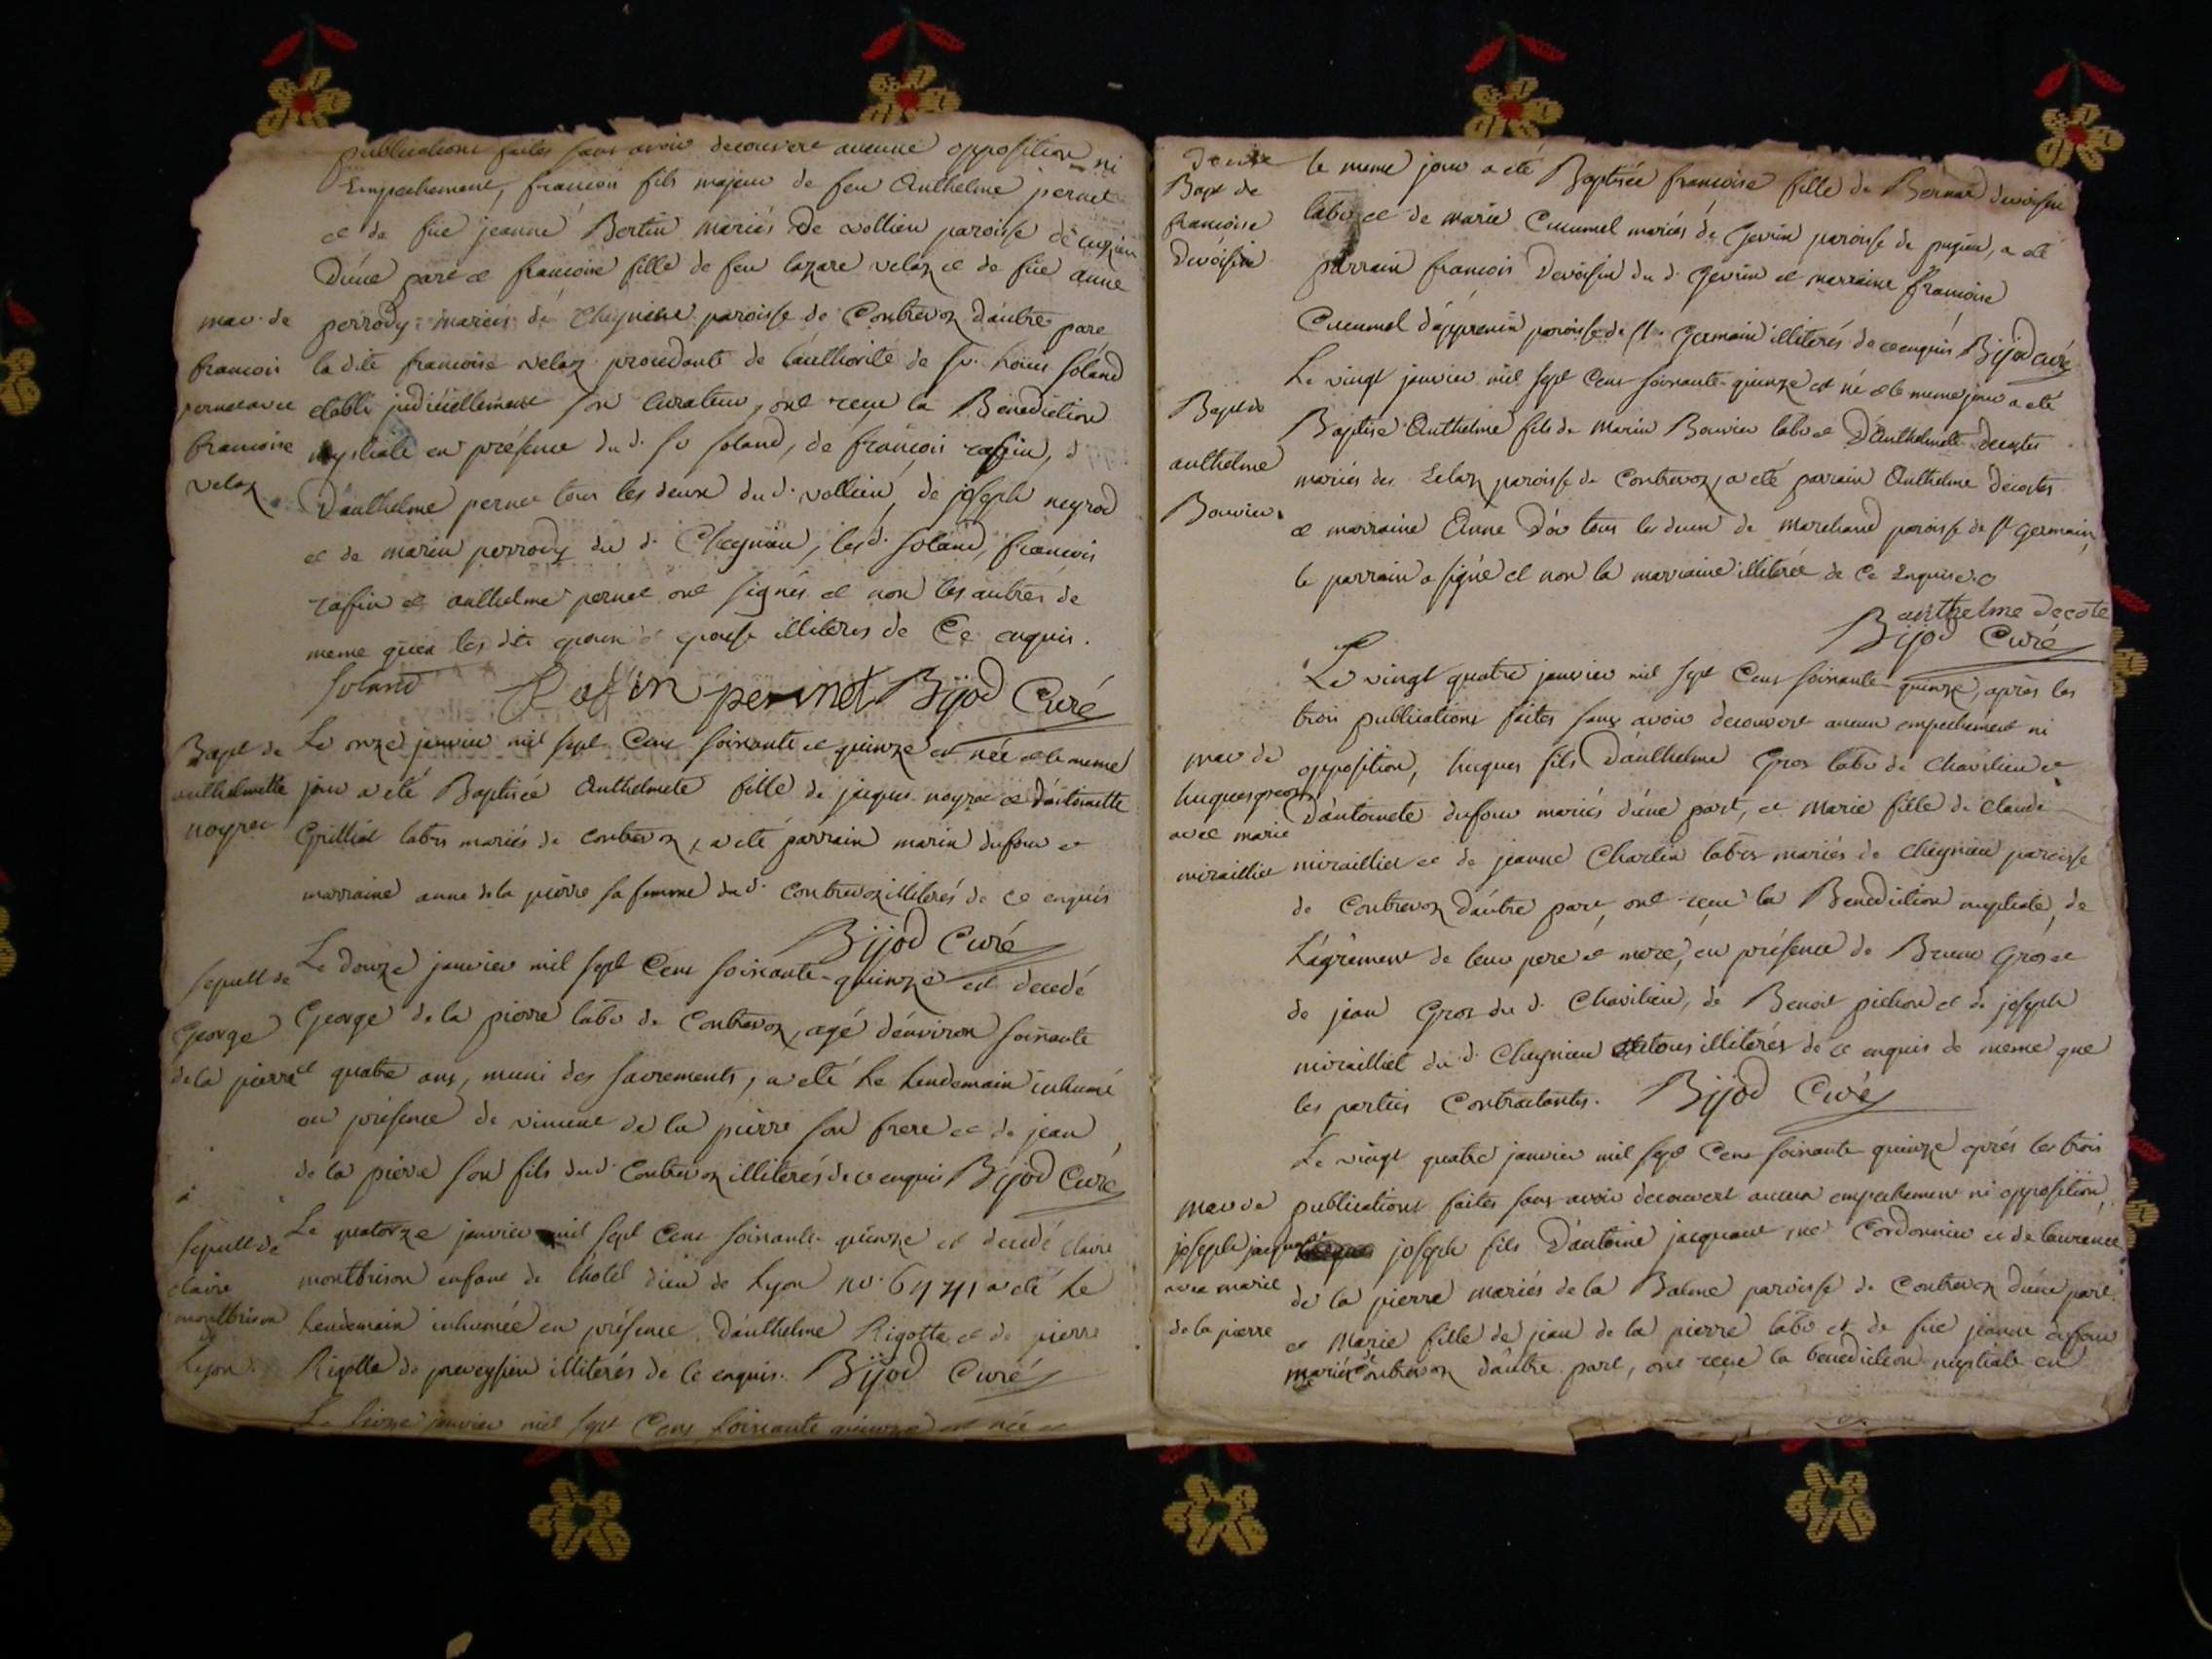 publications faites sans avoir decouvert aucune opposition ni
Empechement, francois fils majeur de feu Anthelme pernet
et de fue jeanne Bertin mariés De vollien paroisse de
D'une part et francoise fille de feu lazare velaz et de fue anne
mar. de
perrody mariés de Cheynieu paroisse de Contrevoz d'autre part
francois
la dite francoise velaz procedante de l'authorité de Sr. Louis Soland
pernet avec
etabli judiciellement son Curateur, ont reçu la Benediction
francoise
nuptiale en présence du d. Sr Soland, de françois raffin, d
velaz
D'anthelme pernet tous les deux du d. vollien, de joseph neyrod
et de marin perrody du d. Cheynieu, les d. Soland, francois
raffin et anthelme pernet ont signés et non les autres de
meme que les dits epoux et epouse illiteres de Ce enquis.
Soland Raffin pernet Bijod Curé
Bapt de
Le onze janvier mil sept Cent soixante et quinze est née et le meme
anthelmette
jour a eté Baptisée Anthelmete fille de jacques noyret et d'antoinette
noyret
Grilliet labrs mariés de contrevoz, a eté parrain marin dufour et
marraine anne de la pierre sa femme du d. Contrevoz illiterés de ce enquis
Bijod Curé
sepult de
Le douze janvier mil sept Cent soixante-quinze est decedé
George
George de la pierre labr de Contrevoz, agé d'environ soixante
de la pierre
et quatre ans, muni des sacrements, a eté le lendemain inhumé
en présence de vincent de la pierre son frere et de jean
de la pierre son fils du d. Contrevoz illiterés de ce enquis Bijod Curé
sepult de
Le quatorze janvier mil sept Cent soixante-quinze est decedé claire
claire
montbrison enfant de l'hotel dieu de Lyon no. a eté le
montbrison
lendemain inhumée en présence D'anthelme Rigotte et de pierre
Lyon
Rigotte de preveyssieu illiterés de Ce enquis. Bijod Curé
Le janvier mil sept Cent soixante quinze est née et
Bapt de
francoise
Devoisin
le meme jour a eté Baptisée francoise fille de Bernard devoisin
labr et de marie Cucumel mariés de Gevrin paroisse de pugieu, a eté
parrain francois Devoisin du d. Gevrin et marraine francoise
Cucumel d'apprenin paroisse de St. Germain illiterés de ce enquis Bijod curé
Le vingt janvier mil sept Cent soixante-quinze est né et le meme jour a eté
Bapt de
Baptisé Anthelme fils de Marin Bouvier labr et D'Anthelmete Decostes
anthelme
mariés des paroisse de Contrevoz, a eté parrain Anthelme Decostes
Bouvier
et marraine Anne tous les deux de Marchand paroisse de St germain,
le parrain a signé et non la marraine illiterée de Ce Enquise
anthelme decote
Bijod Curé
Le vingt quatre janvier mil sept Cent soixante-quinze, après les
trois publications faites sans avoir decouvert aucun empechement ni
mar de
opposition, hugues fils D'anthelme Gros labr de Chavilieu et
hugues gros
D'antoinete dufour mariés d'une part, et Marie fille de Claude
avec marie
miraillet
miraillet et de jeanne Charlin labrs mariés de Cheynieu paroisse
de Contrevoz d'autre part, ont reçu la Benediction nuptiale, de
l'agrement de leur pere et mere, en présence de Gros et
de jean Gros du d. Chavilieu, de Benoit pichon et de joseph
miraillet du d. Cheynieu tous illiterés de ce enquis de meme que
les parties Contractantes. Bijod Curé
Le vingt quatre janvier mil sept Cent soixante quinze après les trois
mar de
publications faites sans avoir decouvert aucun empechement ni opposition,
joseph jacquant
joseph fils D'antoine jacquant me Cordonnier et de laurence
avec marie
de la pierre mariés de la Balme paroisse de Contrevoz d'une part
de la pierre
et Marie fille de jean de la pierre labr et de fue jeanne dufour
mariés de Contrevoz d'autre part, ont reçu la benediction nuptiale en